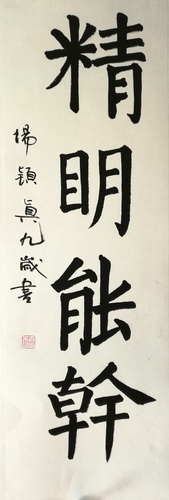 精明能幹
楊穎真九歲書